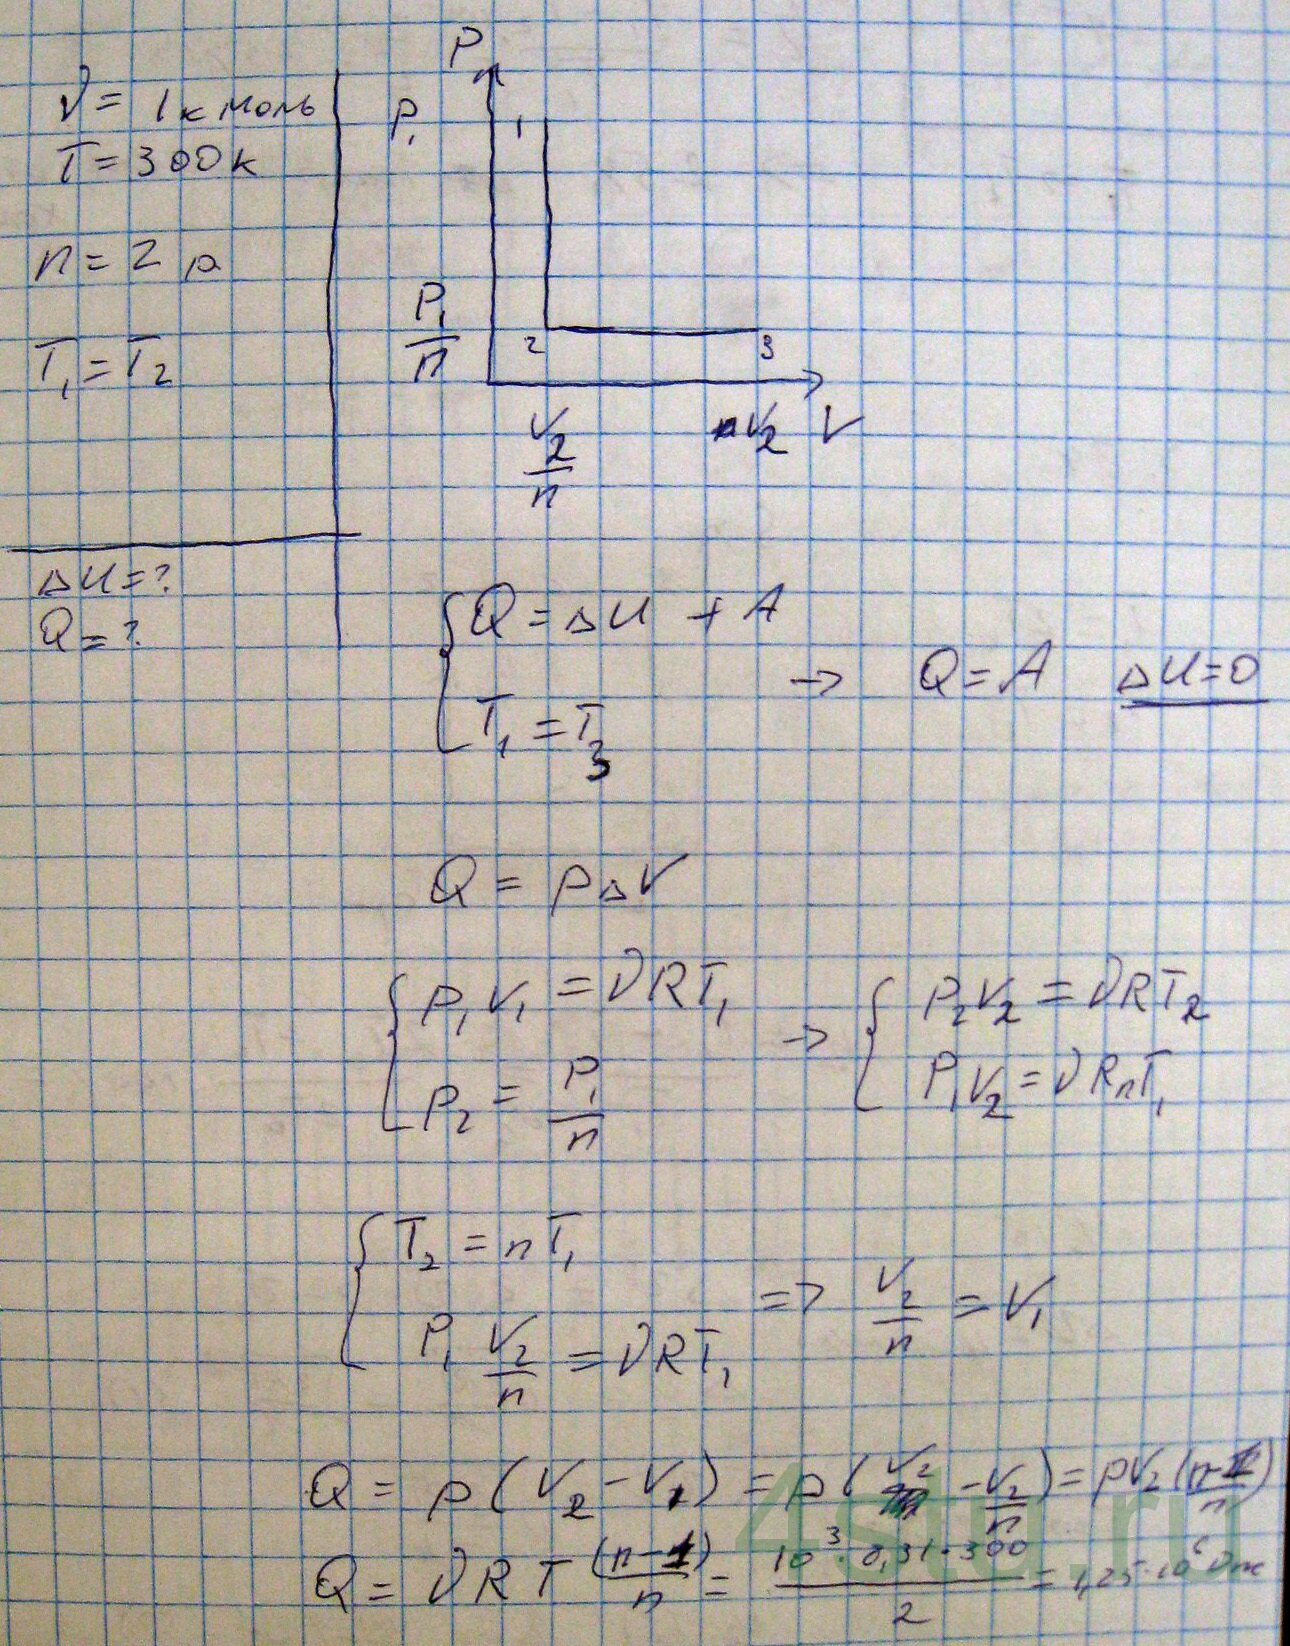 P
ν = 1 кмоль
P₁ 1
T = 300 к
n = 2 р
P₁/n
T₁ = T₂
2 3
V₂/n V₂ V
ΔU = ?
Q = ?
{ Q = ΔU + A
T₁ = T₃
→ Q = A ΔU = 0
Q = pΔV
{ P₁V₁ = νRT₁
P₂ = P₁/n
→ { P₂V₂ = νRT₂
P₁V₂ = νRnT₁
{ T₂ = nT₁
P₁ V₂/n = νRT₁
=> V₂/n = V₁
Q = p(V₂ - V₁) = p(V₂ - V₂/n) = pV₂(n-1/n)
Q = νRT (n-1)/n = 10³·8,31·300/2 = 1,25·10⁶ Дж
4stu.ru